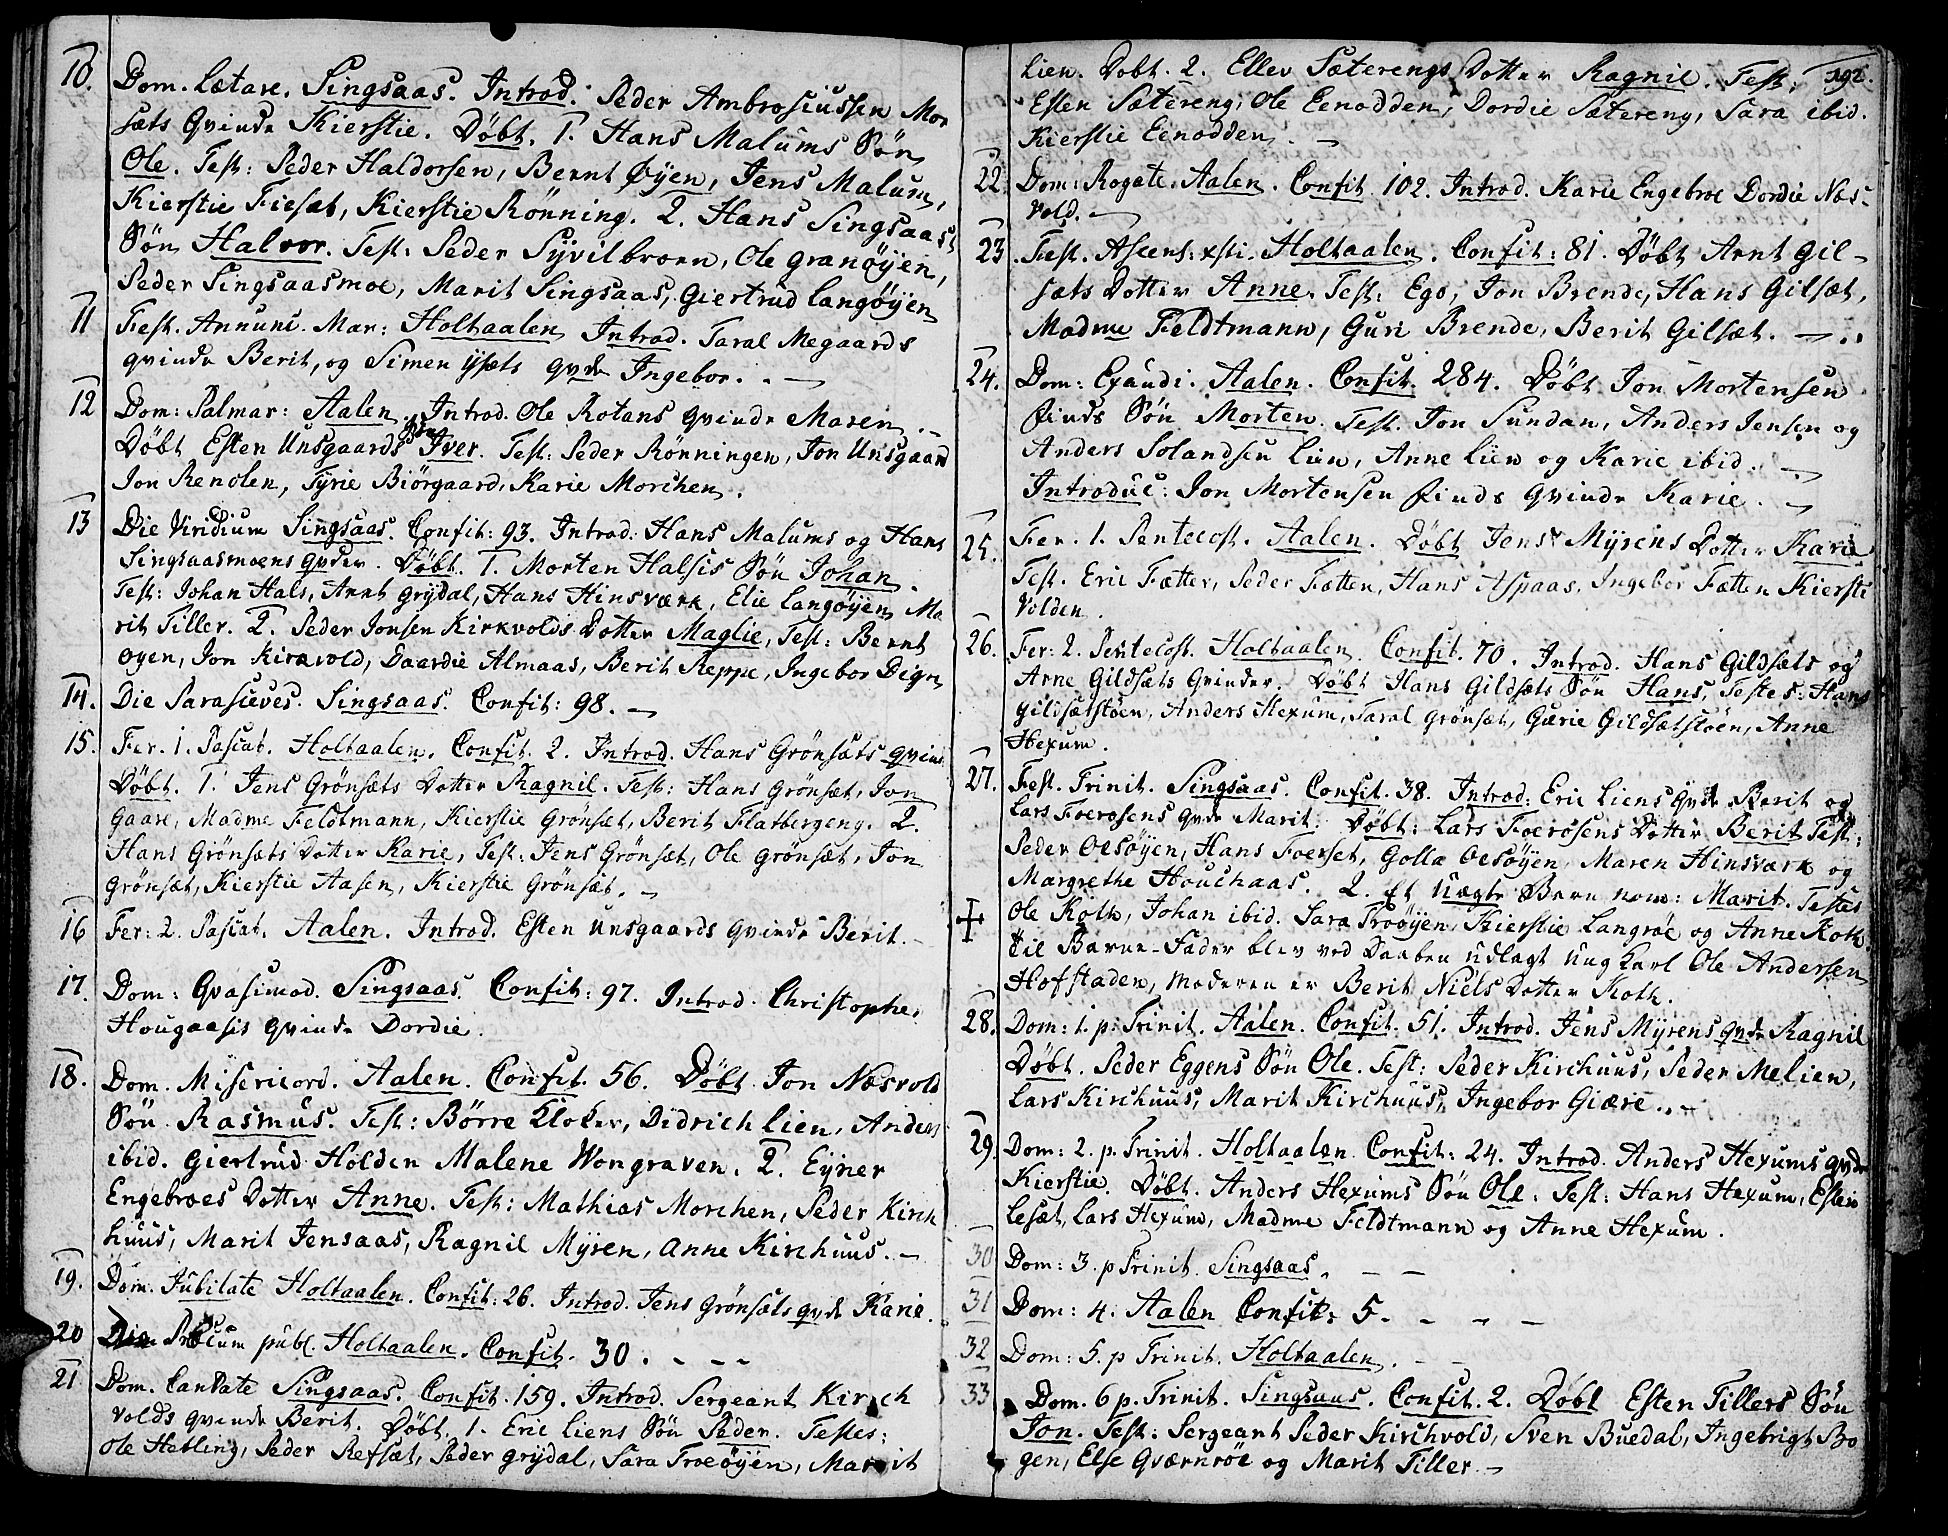 10. Dom. Lætare. Singsaas. Introd. Peder Ambrosiussen Mor
sæts Qvinde Kierstie. Døbt. 1. Hans Malums Søn
Ole. Test: Peder Haldorsen, Bernt Øyen, Jens Malum,
Kierstie Fiesæt, Kierstie Rønning. 2. Hans Singsaas's
Søn Halvor. Test: Peder Syvilbroen, Ole Granøyen,
Peder Singsaasmoe, Marit Singsaas, Giertrud Langøyen
11 Fest. Annunc. Mar: Holtaalen Introd. Taral Megaards
qvinde Berit, og Simen Ysets qvde Ingebor. . —
12 Dom: Palmar: Aalen. Introd. Ole Rotans qvinde Maren . –
Døbt Esten Unsgaards Søn Iver. Test: Peder Rønningen, Jon Unsgaard
Jon Renolen, Tyrie Biørgaard, Karie Morchen.
13 Die Viridium Singsaas. Confit: 93. Introd. Hans Malums og Hans
Singsaasmoens qvder. Døbt. 1. Morten Halsis Søn Johan.
Test: Johan Hals, Arnt Grydal, Hans Hinsværk, Elie Langøyen Ma
rit Tiller. 2. Peder Jonsen Kirkvolds Dotter Maglie, Test: Bernt
Oyen, Jon Kirkvold, Daardie Almaas, Berit Reppe, Ingebor Dign
14. Die Parasceves. Singsaas. Confit: 98. —
15. Fer. 1. Pascat. Holtaalen. Confit. 2. Introd. Hans Grønsæts qvind
Døbt. 1. Jens Grønsæts Dotter Ragnil. Test: Hans Grønsæt, Jon
Gaare, Madme Feldtmann, Kierstie Grønsæt, Berit Flatbergeng. 2.
Hans Grønsæts Dotter Karie, Test: Jens Grønsæt, Ole Grønsæt, Jon
Grønsæt, Kierstie Aasen, Kierstie Grønsæt. —
16 Fer: 2. Pascat. Aalen. Introd. Esten Unsgaards qvinde Berit. –
17. Dom: Qvasimod. Singsaas. Confit: 97. Introd. Christopher
Hougaasis qvinde Dordie.
18. Dom. Misericord. Aalen. Confit. 56. Døbt Jon Næsvold
Søn Rasmus. Test: Børre Kloker, Didrich Lien, Anders
ibid. Giertrud Holden Malene Wongraven. 2. Eyner
Engebroes Dotter Anne. Test: Mathias Morchen, Peder Kirch
huus, Marit Jensaas, Ragnil Myren, Anne Kirchuus. —
19. Dom. Jubilate Holtaalen. Confit: 26. Introd. Jens Grønsæts qvde Karie.
20 Die Precum publ. Holtaalen. Confit. 30. - - -
21 Dom. Cantate Singsaas. Confit. 159. Introd. Sergeant Kirch
volds qvinde Berit. Døbt. 1. Eric Liens Søn Peder. Testes:
Ole Hebling, Peder Refsæt, Peder Grydal, Sara Troeøyen, Marit
192.
Lien. Dobt. 2. Ellev Sæterengs Dotter Ragnil. Test:
Esten Sætereng, Ole Eenodden, Dordie Sætereng, Sara ibid.
Kierstie Eenodden. —
22 Dom: Rogate. Aalen. Confit 102. Introd. Karie Engebroe Dordie Næs-
vold. —
23 Fest. Ascens: xsti. Holtaalen. Confit: 81. Døbt Arnt Gil-
sæts Dotter Anne. Test: Ego, Jon Brende, Hans Gilsæt,
Madme Feldtmann, Guri Brende, Berit Gilsæt. — . .
24. Dom: Exaudi. Aalen. Confit. 284. Døbt Jon Mortensen
finds Søn Morten. Test. Jon Sundan, Anders Jensen og
Anders Solandsen Lien, Anne Lien og Karie ibid. —
Introduc: Jon Mortensen finds qvinde Karie. —
25. Fer. 1. Pentecost. Aalen. Døbt Jens Myrens Dotter Karie
Test. Eric Fætten, Peder Fætten, Hans Aspaas, Ingebor Fætten Kiersti
Volden.
26. Fer: 2. Pentecost. Holtaalen. Confit. 70. Introd. Hans Gildsæts og
Arne Gildsæts Qvinder. Døbt Hans Gildsæts Søn Hans, Testes: Hans
Gildsætstøen, Anders Hexum, Taral Grønsæt, Gurie Gildsætstøen, Anne
Hexum.
27. Fest. Trinit. Singsaas. Confit. 38. Introd: Eric Liens qvde Berit og
Lars Foerosens qvde Marit. Døbt: Lars Foerosens Dotter Berit Test:
Peder Oesøyen, Hans Foerset, Golla Oesøyen, Maren Hinsværk og
Margrethe Houchaas. 2. Et Uægte Barn nom: Marit. Testes
Ole Koth, Johan ibid. Sara Troøyen, Kierstie Langrøe og Anne Koth
til Barne-Fader blev ved Daaben udlagt Ungkarl Ole Andersen
Hofstaden, Moderen er Berit Niels Dotter Koth.
28. Dom: 1. p. Trinit. Aalen. Confit. 51. Introd. Jens Myrens qvde Ragnil
Døbt. Peder Eggens Søn Ole. Test: Peder Kirchuus, Peder Melien,
Lars Kirchuus, Marit Kirchuus, Ingebor Giære. . –
29. Dom: 2. p. Trinit. Holtaalen Confit: 24. Introd. Anders Hexums qvde
Kierstie. Døbt. Anders Hexums Søn Ole. Test: Hans Hexum, Esten
Lesæt, Lars Hexum, Madme Feldtmann og Anne Hexum.
30 Dom: 3. p Trinit. Singsaas. – –
31 Dom: 4. Aalen Confit: 5. - - - -
32 Dom: 5. p Trinit. Holtaalen. - -
33 Dom. 6 p. Trinit. Singsaas. Confit. 2. Døbt Esten Tillers Søn
Jon. Test: Sergeant Peder Kirchvold, Sven Buedal, Ingebrigt Bo
gen, Else Qværnrøe og Marit Tiller. —